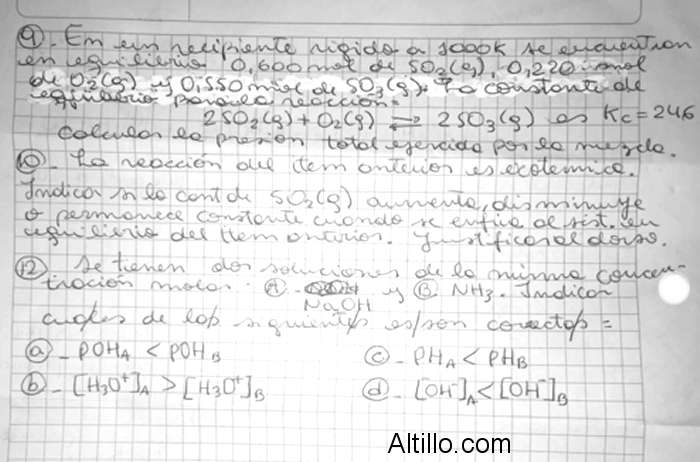 9.- En un recipiente rígido a 1000K se encuentran
en equilibrio 0,600 mol de SO2(g), 0,220 mol
de O2(g) y 0,550 mol de SO3(g). La constante de
equilibrio para la reacción:
2SO2(g) + O2(g) ⇌ 2SO3(g) es Kc = 246
Calcular la presión total ejercida por la mezcla.
10.- La reacción del item anterior es exotermica.
Indicar si la cant de SO2(g) aumenta, disminuye
o permanece constante cuando se enfría al sist. en
equilibrio del item anterior. Justificar al dorso.
12. Se tienen dos soluciones de la misma concen-
tración molar: A - NaOH y B. NH3. Indicar
cuales de las siguientes es/son correctas =
a - pOHA < pOHB
c - pHA < pHB
b - [H3O+]A > [H3O+]B
d - [OH-]A < [OH-]B
Altillo.com